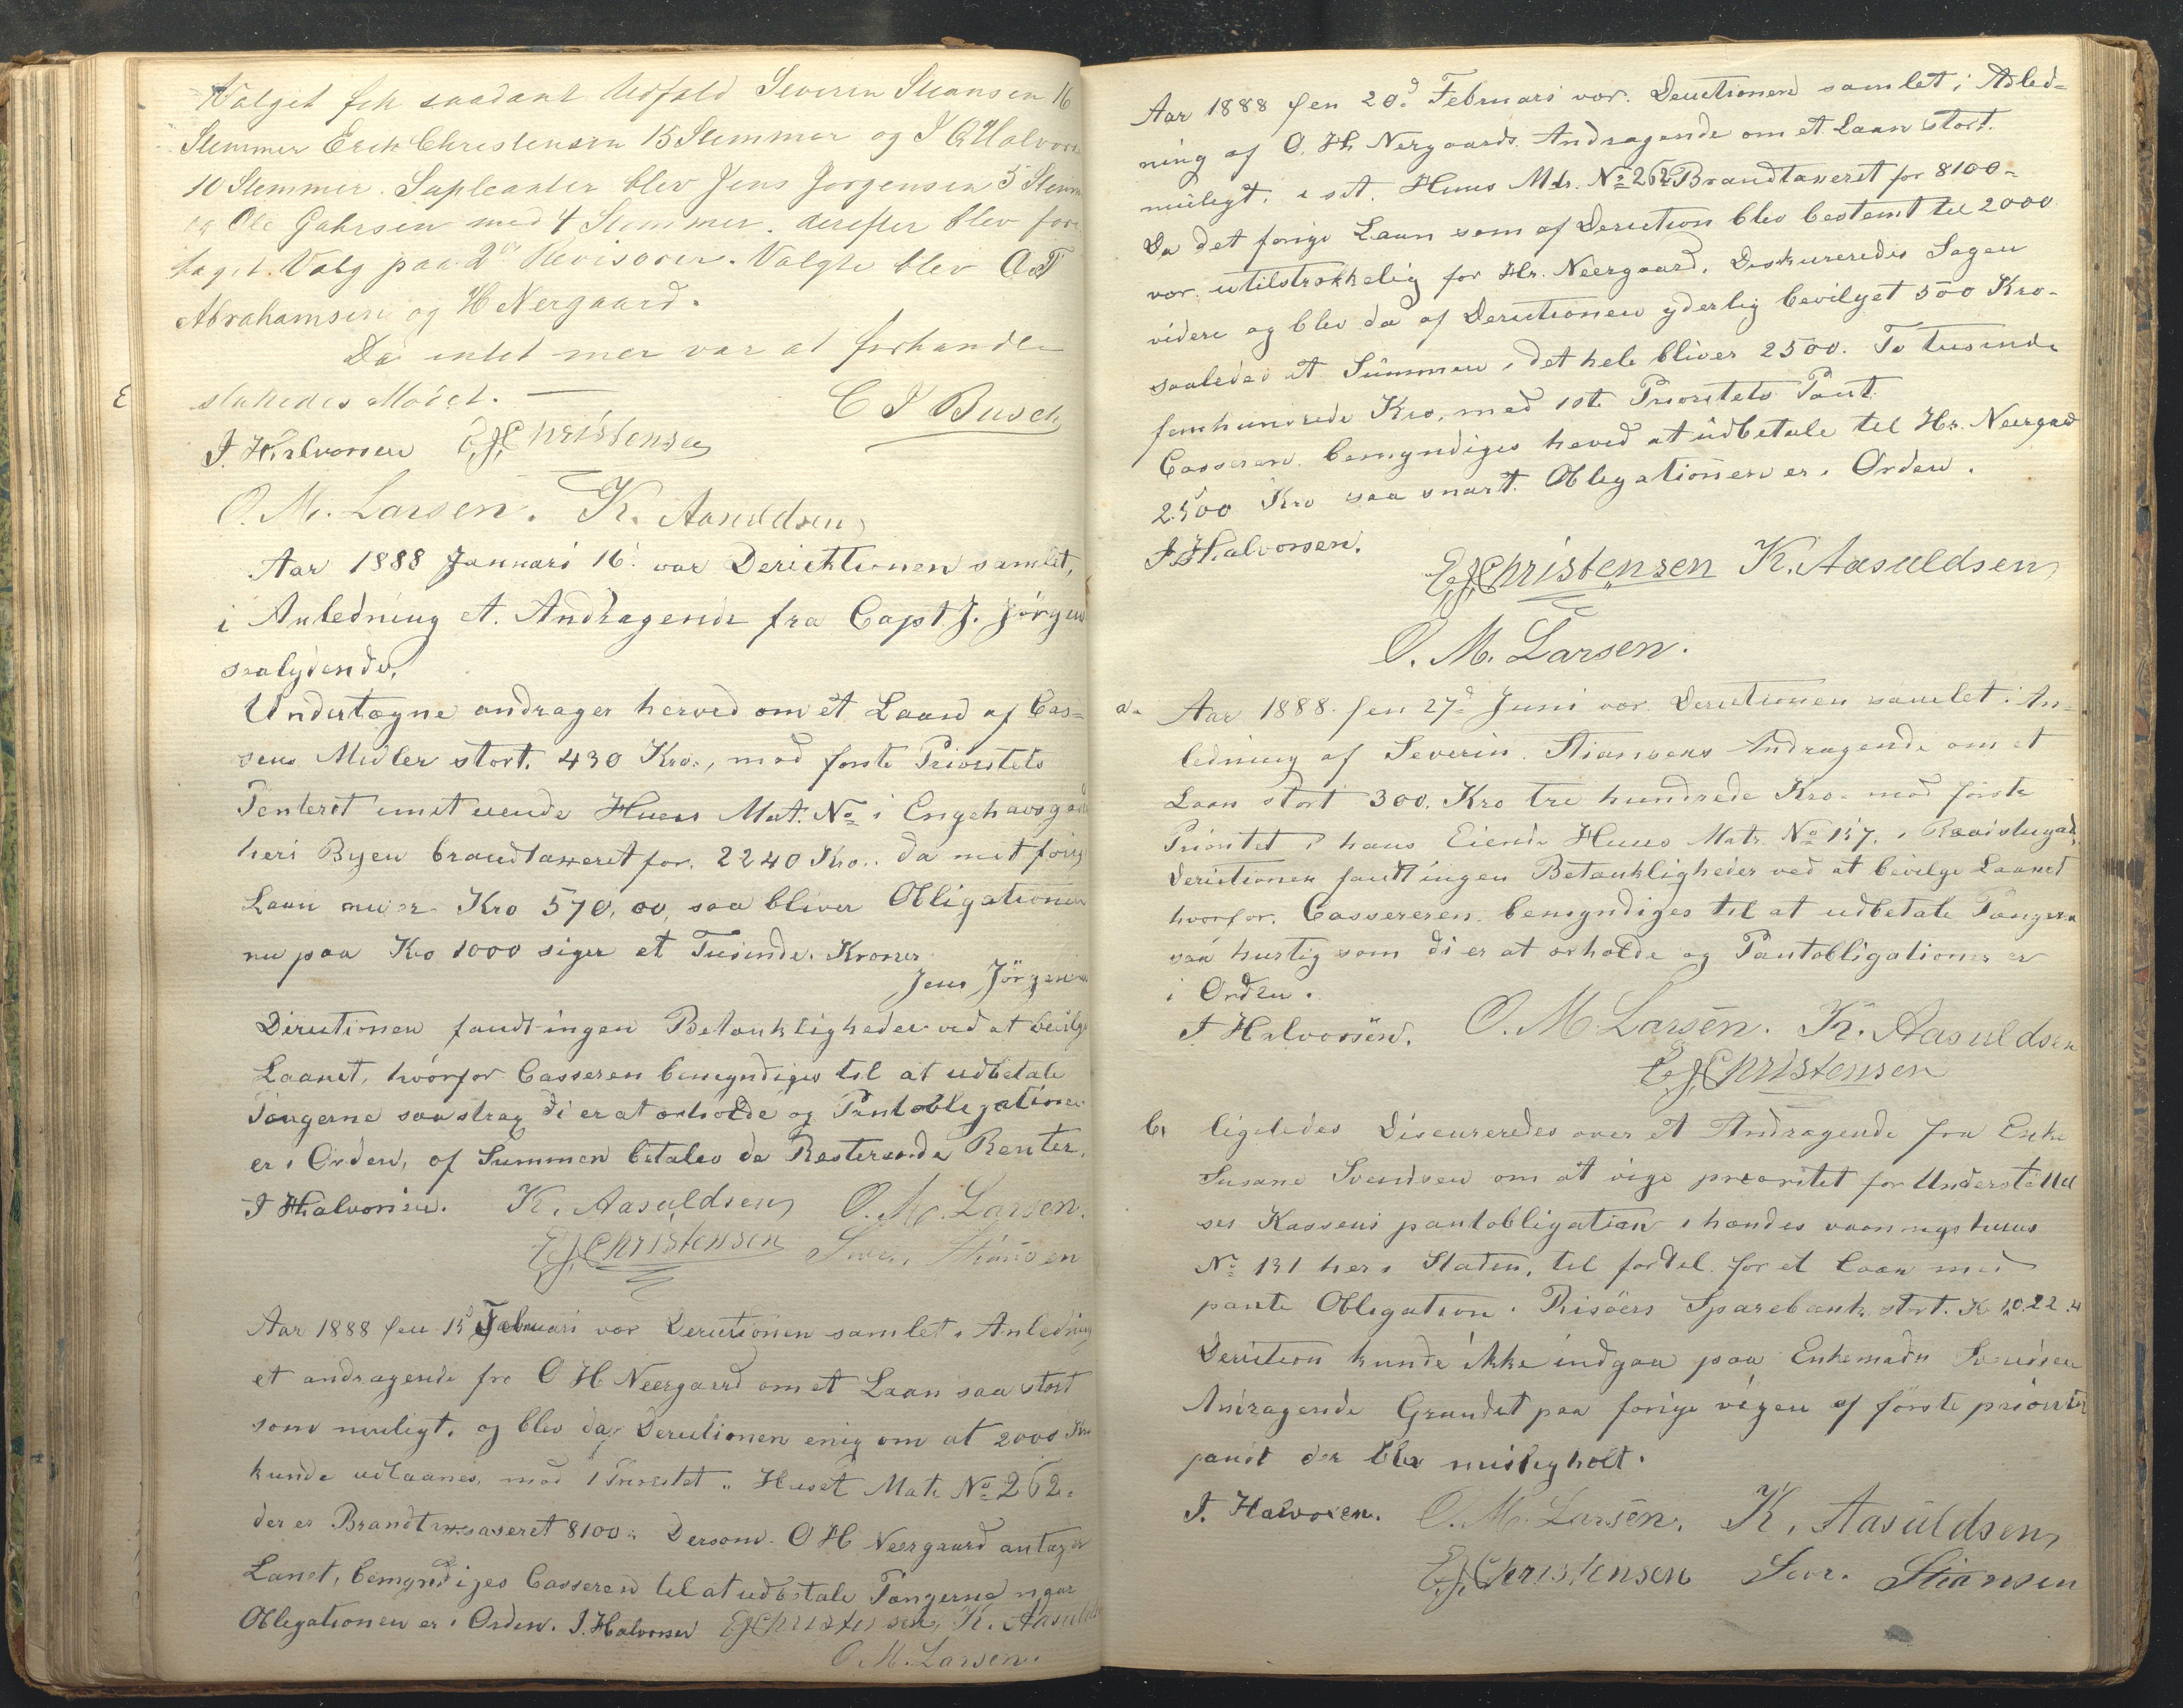 Valget fik saadant Udfald Severin Stiansen 16
Stemmer Erik Christensen 15 Stemmer og J Halvors
10 Stemmer. Supleanter blev Jens Jorgensen 5 Stem
og Ole Gahrsen med 4 Stemmer. derefter blev fore
taget. Valg paa 2de Revisorer. Valgte blev O T
Abrahamsen og H Nergaard.
Da intet mer var at forhandle
sluttedes Mödet.
C J Busch
J. Halvorsen E J Christensen
O. M. Larsen. K. Aasuldsen
Aar 1888 Januari 16d var Derichtionen samlet,
i Anledning et. Andragende fra Capt. J. Jörgen
saalydende,
Undertegne andrager herved om et Laand af Cas=
sens Midler stort. 430 Kro., mod förste Prioritets
Penteret i mit eiende Huus Mat. No i Engehavsgad
heri Byen brandtaxeret for. 2240 Kro.. da mit forig
Laan nu er Kro 570,00, saa bliver Obligationen
nu paa Kro 1000 siger et Tusinde Kroner
Jens Jörgensen
Dirictionen fandt ingen Betænkligheder ved at bevilge
Laanet, hvorfor Casseren bemyndiges til at udbetale
Pængerne saa strag di er at erholde og Pantobligationen
er i Orden, af Summen betales de Resterende Renter.
J Halvorsen. K. Aasuldsen O. M. Larsen.
E J Christensen Sevr. Stiansen
Aar 1888 den 15d Februari var Derictionen samlet i Anledning
et andragende fra O H Neergaard om et Laan saa stort
som muligt, og blev da Derictionen enig om at 2000 Kro
kunde udlaanes, mod 1 Prioritet i Huset Matr No 262.
der er Brandtaxaseret 8100.. Dersom O H Neergaard antager
Lanet, bemyndiges Casseren til at udbetale Pængerne naar
Obligationen er i Orden. J. Halvorsen E J Christensen, K. Aasulds
O. M. Larsen.
Aar 1888 den 20d Februari var. Derictionen samlet i Anled-
ning af O. H. Nergaards Andragende om et Laan stort.
muligt. i sit. Huus Mtr. No 262 Brandtaxeret for 8100-
Da det forige Laan som af Deriction blev bestemt til 2000
var utilstrækkelig for Hr. Neergaard. Diskureredes Sagen
videre og blev da af Derictionen yderlig bevilget 500 Kro-
saaledes at Summen i det hele bliver 2500. To tusinde
femhundrede Kro, mod 1ste Prioritets Pant.
Casseren bemyndiges herved at udbetale til Hr. Neergad
2500 Kro saa snart Obligationen er i Orden.
J. Halvorsen.
E J Christensen K. Aasuldsen
O. M. Larsen.
a. Aar 1888. den 27d Juni var Derictionen samlet i An-
ledning af Severin. Stiansens Andragende om et
Laan stort 300. Kro tre hundrede Kro. mod förste
Prioritet i hans Eiende Huus Matr. No 137. i
Derictionen fandt ingen Betænkligheder ved at bevilge Laanet
hvorfor. Cassereren bemyndiges til at udbetale Pængerne
saa hurtig som di er at erholde og Pantobligationen er
i Orden.
J Halvorsen. O. M Larsen. K. Aasuldsen
E J Christensen
b. ligeledes Discureredes over et Andragende fra Enke
Susane Svendsen om at vige prioritet for Understöttel
ses Kassens pantobligation i hendes vaaningshuus
No 131 her i Staden, til fordel for et Laan mod
pante Obligation i Risöers Sparebank stort. K 1022.
Deriction kunde ikke indgaa paa Enkemadm Svendsen
Andragende Grundet paa forige vigen af förste prioritet
pandt der blev misligholt.
J. Halvorsen. O. M. Larsen. K. Aasuldsen
E J Christensen Sevr. Stiansen